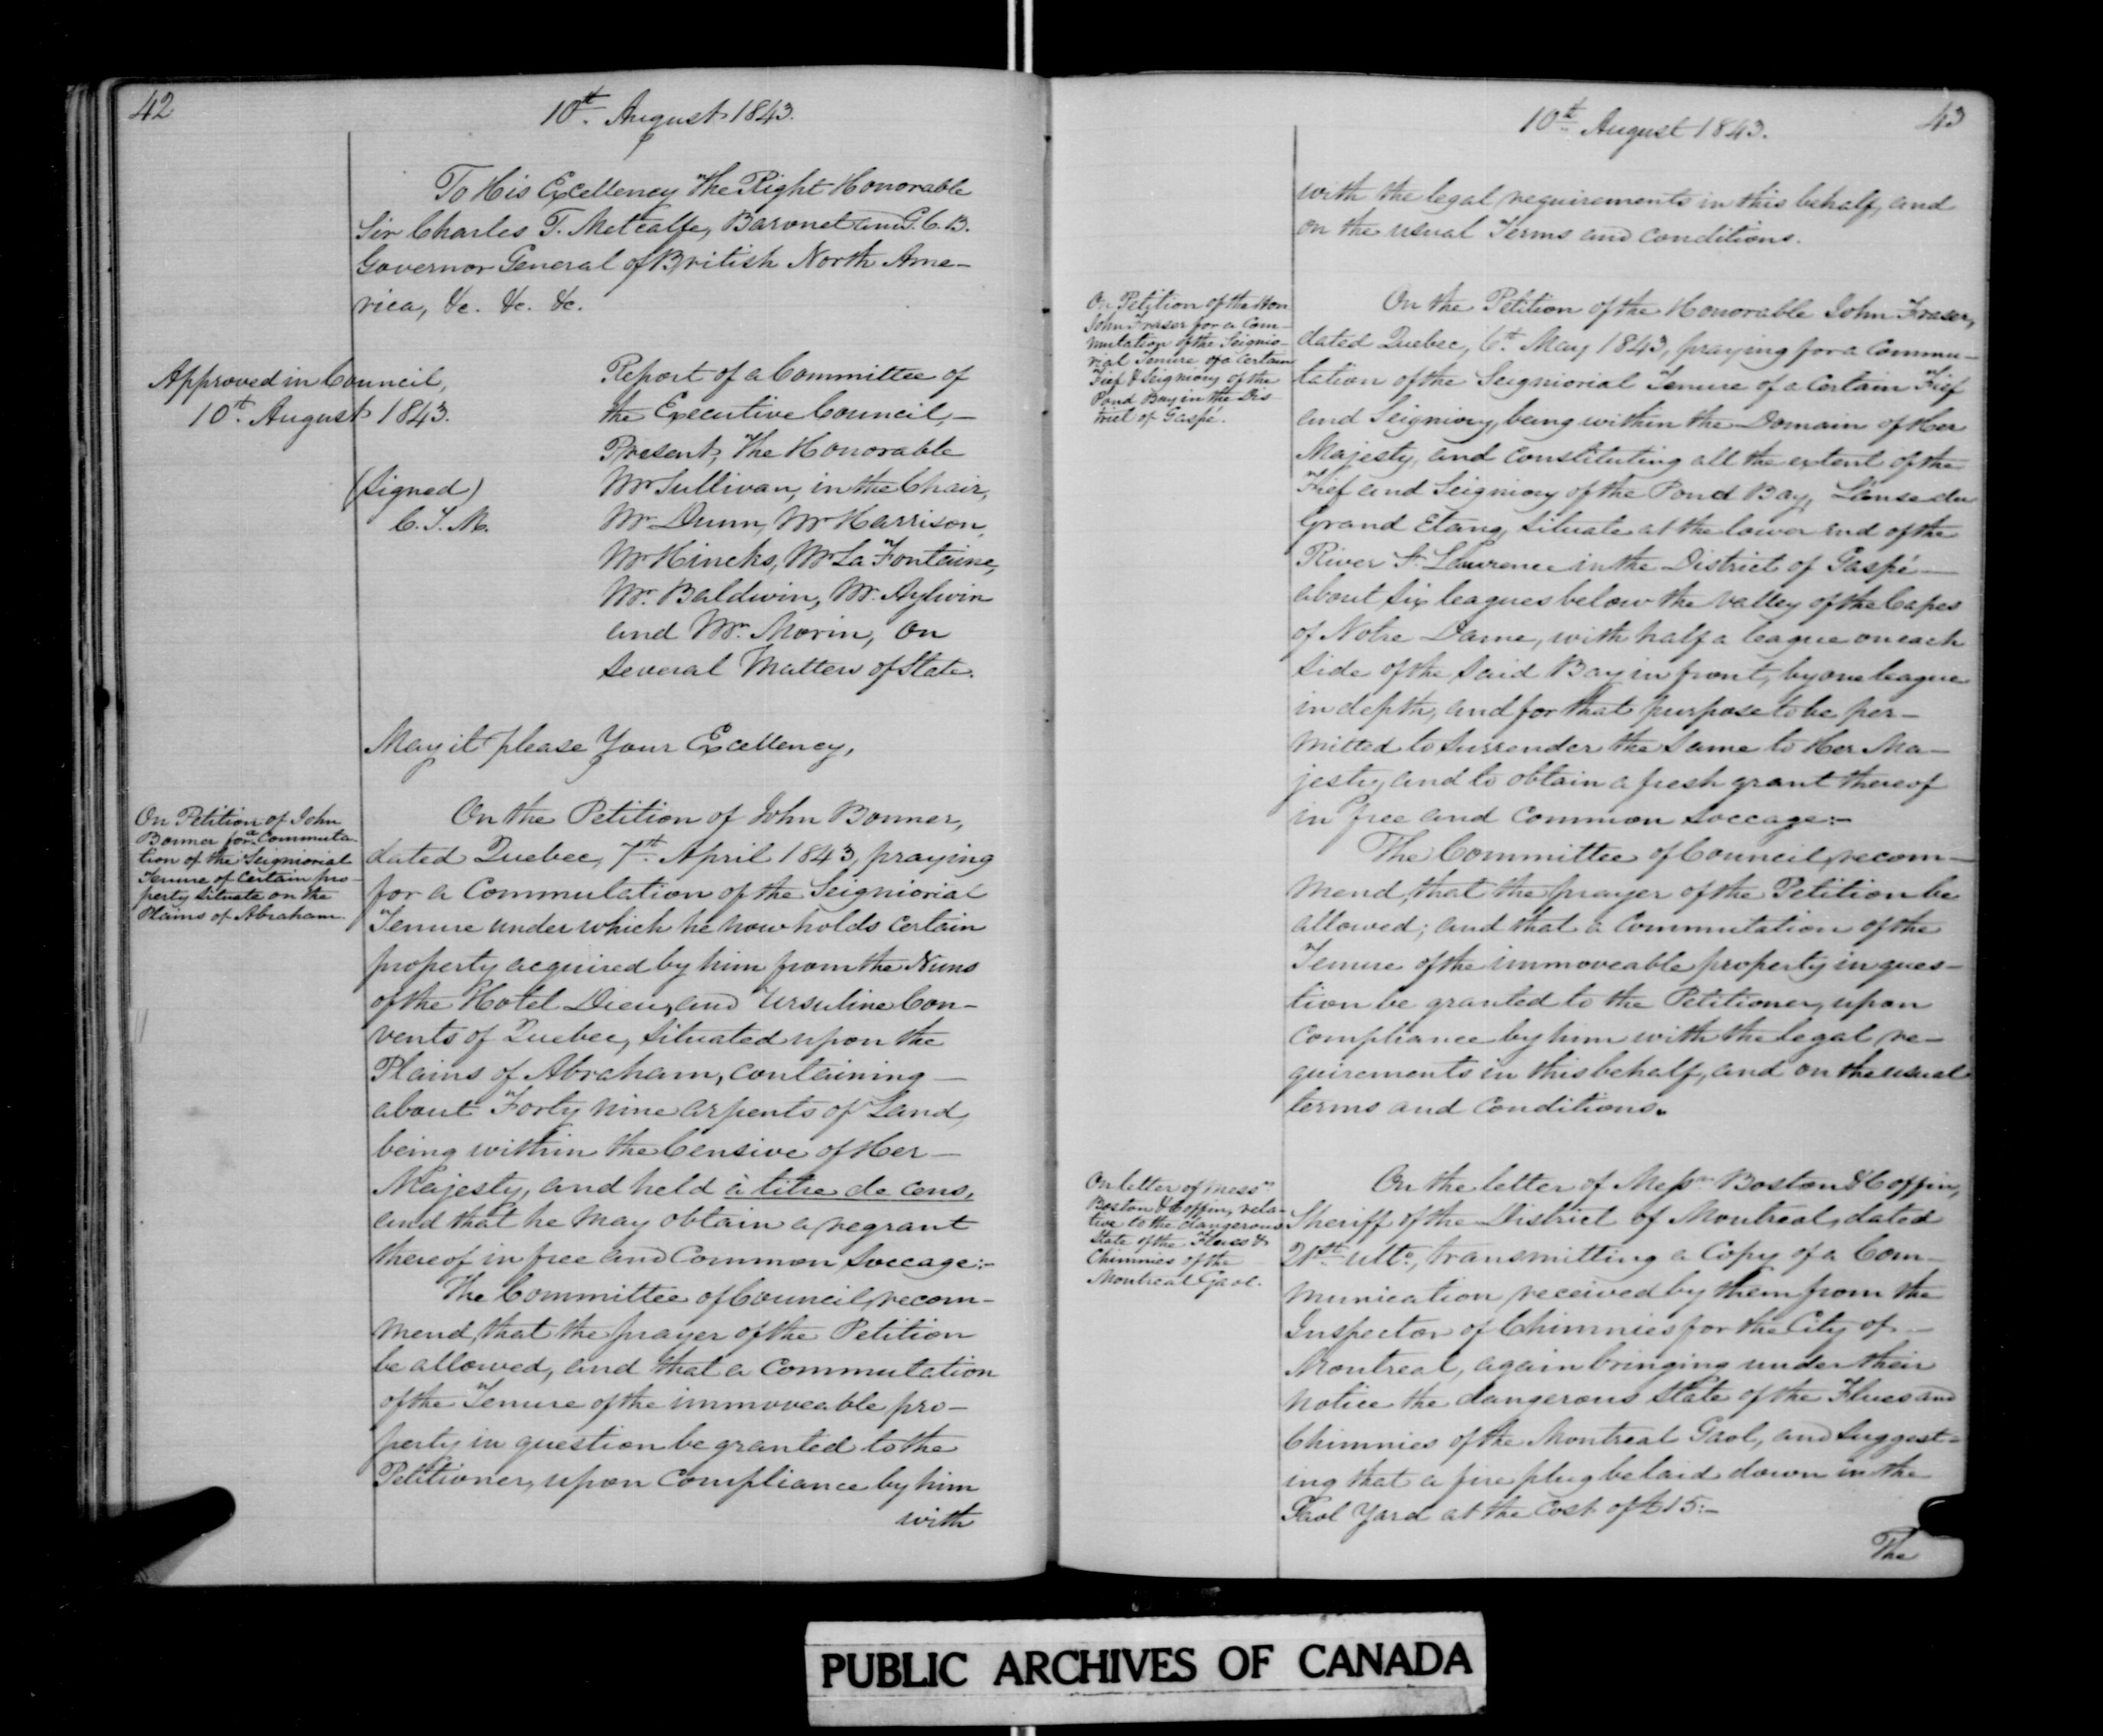 42
10th. August 1843.
To His Excellency The Right Honorable
Sir Charles T. Metcalfe, Baronet and G.C.B.
Governor General of British North Ame-
rica, &c. &c. &c.
Approved in Council,
10th. August 1843.
(signed)
C. T. M.
Report of a Committee of
the Executive Council,-
Present, The Honorable
Mr Sullivan, in the Chair,
Mr Dunn, Mr Harrison,
Mr Hincks, Mr La Fontaine,
Mr. Baldwin, Mr. Aylwin
and Mr. Morin, On
several Matters of State.
May it please Your Excellency,
On Petition of John
Bonner for a Commuta-
tion of the Seigniorial
Tenure of certain pro-
perty situate on the
Plains of Abraham.
On the Petition of John Bonner,
dated Quebec, 7th. April 1843, praying
for a Commutation of the Seigniorial
Tenure under which he now holds certain
property acquired by him from the Nuns
of the Hotel Dieu, and Ursuline Con-
vents of Quebec, situated upon the
Plains of Abraham, containing -
about Forty nine arpents of Land,
being within the Censive of Her -
Majesty, and held à titre de cens,
and that he may obtain a regrant
thereof in free and Common Soccage:-
The Committee of Council, recom-
mend, that the prayer of the Petition
be allowed, and that a Commutation
of the Tenure of the immoveable pro-
perty in question be granted to the
Petitioner, upon compliance by him
with
10th. August 1843.
43
with the legal requirements in this behalf, and
on the usual Terms and conditions.
On Petition of the Hon
John Fraser for a Com-
mutation of the Seignio-
rial Tenure of a certain
Fief & Seigniory of the
Pond Bay in the Dis-
trict of Gaspé.
On the Petition of the Honorable John Fraser,
dated Quebec, 6th. May 1843, praying for a Commu-
tation of the Seigniorial Tenure of a certain Fief
and Seigniory, being within the Domain of Her
Majesty, and constituting all the extent of the
Fief and Seigniory of the Pond Bay, L'anse du
Grand Etang, situate at the lower end of the
River St. Lawrence in the District of Gaspé -
about six leagues below the valley of the Capes
of Notre Dame, with half a league on each
side of the said Bay in front, by one league
in depth, and for that purpose to be per-
mitted to surrender the same to Her Ma-
jesty, and to obtain a fresh grant thereof
in free and common soccage:-
The Committee of Council, recom-
mend, that the prayer of the Petition be
allowed; and that a Commutation of the
Tenure of the immoveable property in ques-
tion be granted to the Petitioner, upon
compliance by him with the legal re-
quirements in this behalf, and on the usual
terms and conditions.
On letter of Messrs
Boston & Coffin, rela-
tive to the dangerous
state of the Flues &
Chimnies of the
Montreal Gaol.
On the letter of Messrs Boston & Coffin,
Sheriff of the District of Montreal, dated
21st. ulto., transmitting a Copy of a Com-
munication received by them from the
Inspector of Chimnies for the City of -
Montreal, again bringing under their
notice the dangerous state of the Flues and
Chimnies of the Montreal Gaol, and suggest-
ing that a fire plug be laid down in the
Gaol Yard at the cost of £15:-
The
PUBLIC ARCHIVES OF CANADA